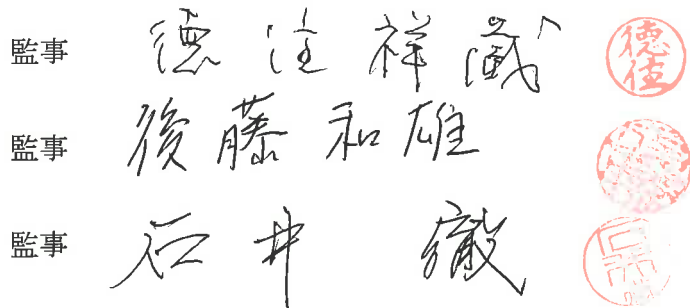 監事 德住祥蔵 德住
監事 後藤和雄
監事 石井 徹